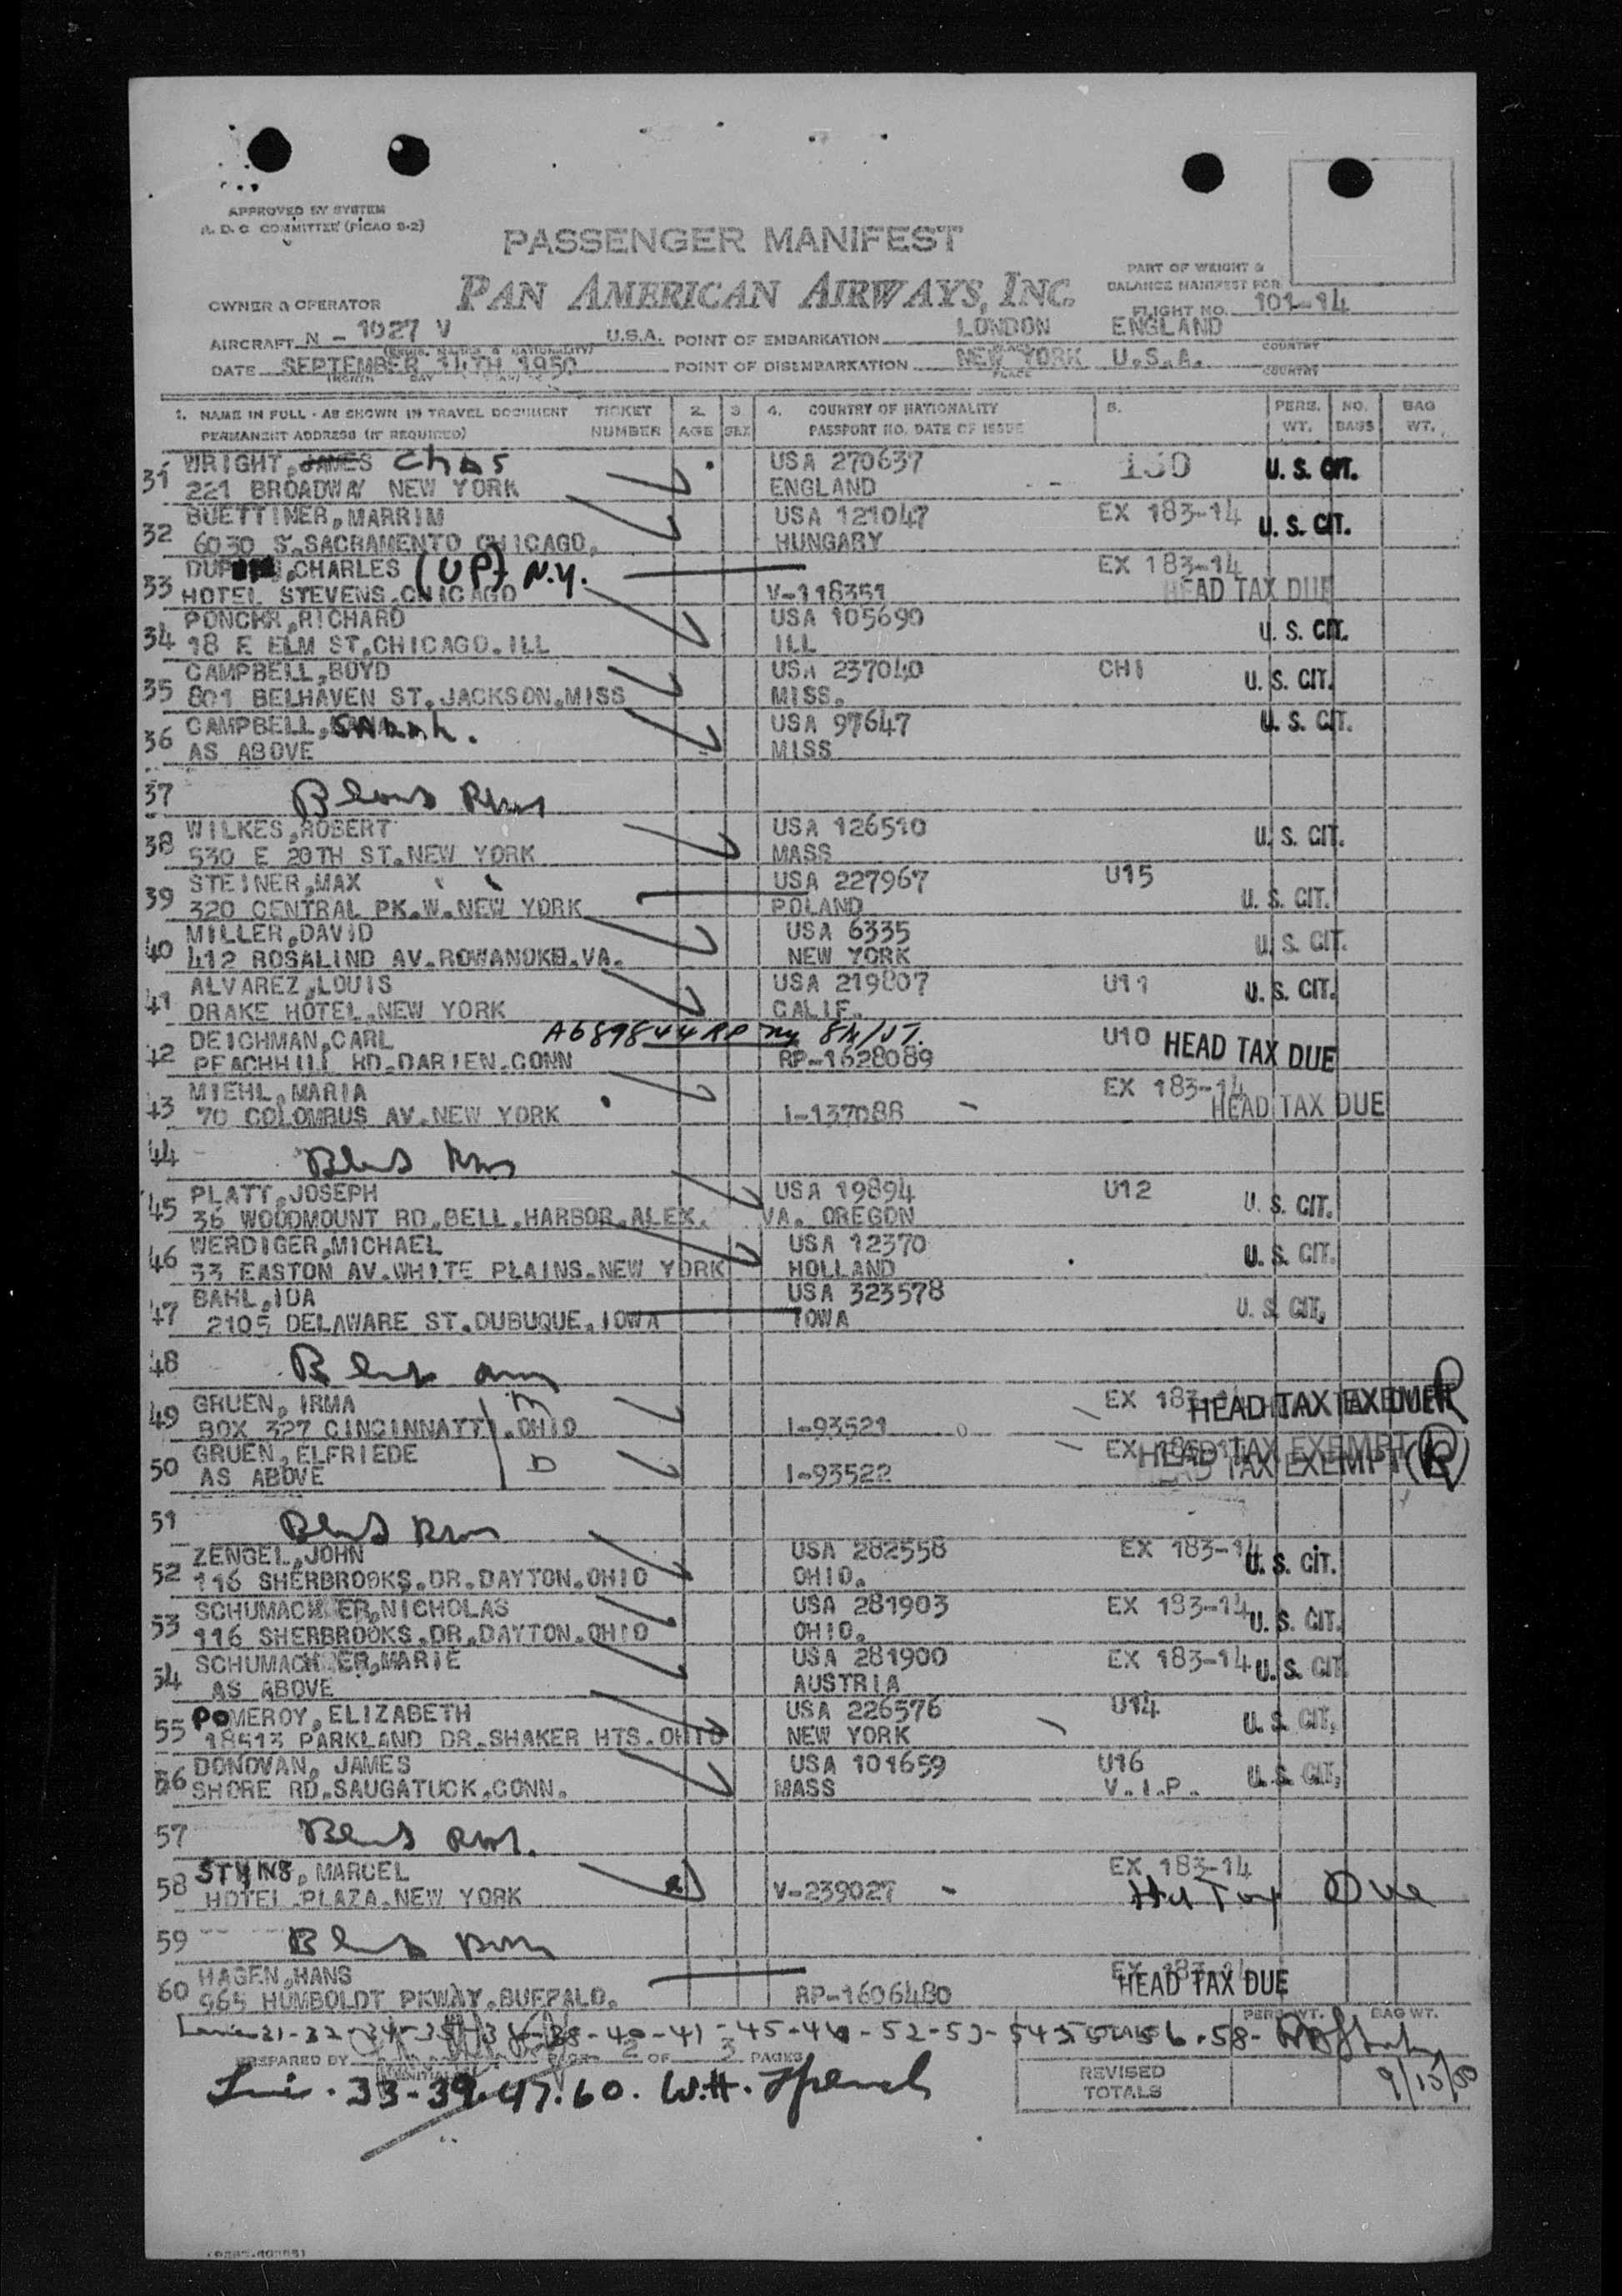 APPROVED BY SYSTEM
A. D. C COMMITTEE (PICAO S-2)
PASSENGER MANIFEST
PAN AMERICAN AIRWAYS, INC.
PART OF WEIGHT &
BALANCE MANIFEST FOR
OWNER & OPERATOR
FLIGHT NO. 101-14
AIRCRAFT N - 1027 V U.S.A. POINT OF EMBARKATION LONDON ENGLAND
COUNTRY
DATE SEPTEMBER 14TH 1950 POINT OF DISEMBARKATION NEW YORK U.S.A.
MONTH DAY PLACE COUNTRY
1. NAME IN FULL - AS SHOWN IN TRAVEL DOCUMENT TICKET 2. 3 4. COUNTRY OF NATIONALITY 5. PERS. NO. BAG
PERMANENT ADDRESS (IF REQUIRED) NUMBER AGE SEX PASSPORT NO. DATE OF ISSUE WT. BAGS WT.
31 WRIGHT, JAMES Chas USA 270637 130 U. S. CIT.
221 BROADWAY NEW YORK ENGLAND
32 BUETTINER, MARRIM USA 121047 EX 183-14 U. S. CIT.
6030 S. SACRAMENTO CHICAGO. HUNGARY
33 CHARLES (UP) N.Y. EX 183-14
HOTEL STEVENS.CHICAGO V-118351 HEAD TAX DUE
34 PONCHR,RICHARD USA 105690 U. S. CIT.
18 E ELM ST.CHICAGO. ILL ILL
35 CAMPBELL,BOYD USA 237040 CHI U. S. CIT.
801 BELHAVEN ST.JACKSON,MISS MISS.
36 CAMPBELL, Sarah. USA 97647 U. S. CIT.
AS ABOVE MISS
37
38 WILKES,ROBERT USA 126510 U. S. CIT.
530 E 20TH ST.NEW YORK MASS
39 STEINER,MAX USA 227967 U15 U. S. CIT.
320 CENTRAL PK.W.NEW YORK POLAND
40 MILLER,DAVID USA 6335 U. S. CIT.
412 ROSALIND AV.ROWANOKE.VA. NEW YORK
41 ALVAREZ,LOUIS USA 219807 U11 U. S. CIT.
DRAKE HOTEL,NEW YORK CALIF.
42 DEICHMAN,CARL A689844 RP ny U10 HEAD TAX DUE
PEACHHILL RD.DARIEN.CONN RP-1628089
43 MIEHL,MARIA EX 183-14
70 COLOMBUS AV.NEW YORK I-137088 HEAD TAX DUE
44
45 PLATT,JOSEPH USA 19894 U12 U. S. CIT.
36 WOODMOUNT RD.BELL.HARBOR.ALEX. VA. OREGON
46 WERDIGER,MICHAEL USA 12370 U. S. CIT.
33 EASTON AV.WHITE PLAINS.NEW YORK HOLLAND
47 BAHL,IDA USA 323578 U. S. CIT.
2105 DELAWARE ST.DUBUQUE.IOWA IOWA
48
49 GRUEN, IRMA EX 183 HEAD TAX
BOX 327 CINCINNATTI.OHIO I-93521
50 GRUEN, ELFRIEDE EX HEAD TAX EXEMPT (R)
AS ABOVE D I-93522
51
52 ZENGEL,JOHN USA 282558 EX 183-14 U. S. CIT.
116 SHERBROOKS.DR.DAYTON.OHIO OHIO.
53 SCHUMACHER,NICHOLAS USA 281903 EX 183-14 U. S. CIT.
116 SHERBROOKS.DR.DAYTON.OHIO OHIO.
54 SCHUMACHER,MARIE USA 281900 EX 183-14 U. S. CIT
AS ABOVE AUSTRIA
55 POMEROY, ELIZABETH USA 226576 U14 U. S. CIT.
18513 PARKLAND DR.SHAKER HTS.OHIO NEW YORK
56 DONOVAN, JAMES USA 101659 U16 U. S. CIT.
SHORE RD.SAUGATUCK.CONN. MASS V.I.P.
57
58 STYNS, MARCEL EX 183-14
HOTEL PLAZA.NEW YORK V-239027 Hd Tax Due
59
60 HAGEN,HANS HEAD TAX DUE
965 HUMBOLDT PKWAY.BUFFALO. RP-1606480
PERS WT. BAG WT.
31-32-34-35-36-38-40-41-45-46-52-53-54-55-56-58-
PREPARED BY PAGE 2 OF 3 PAGES
33-39-47.60. W.H. Spench
REVISED TOTALS
9/15/50